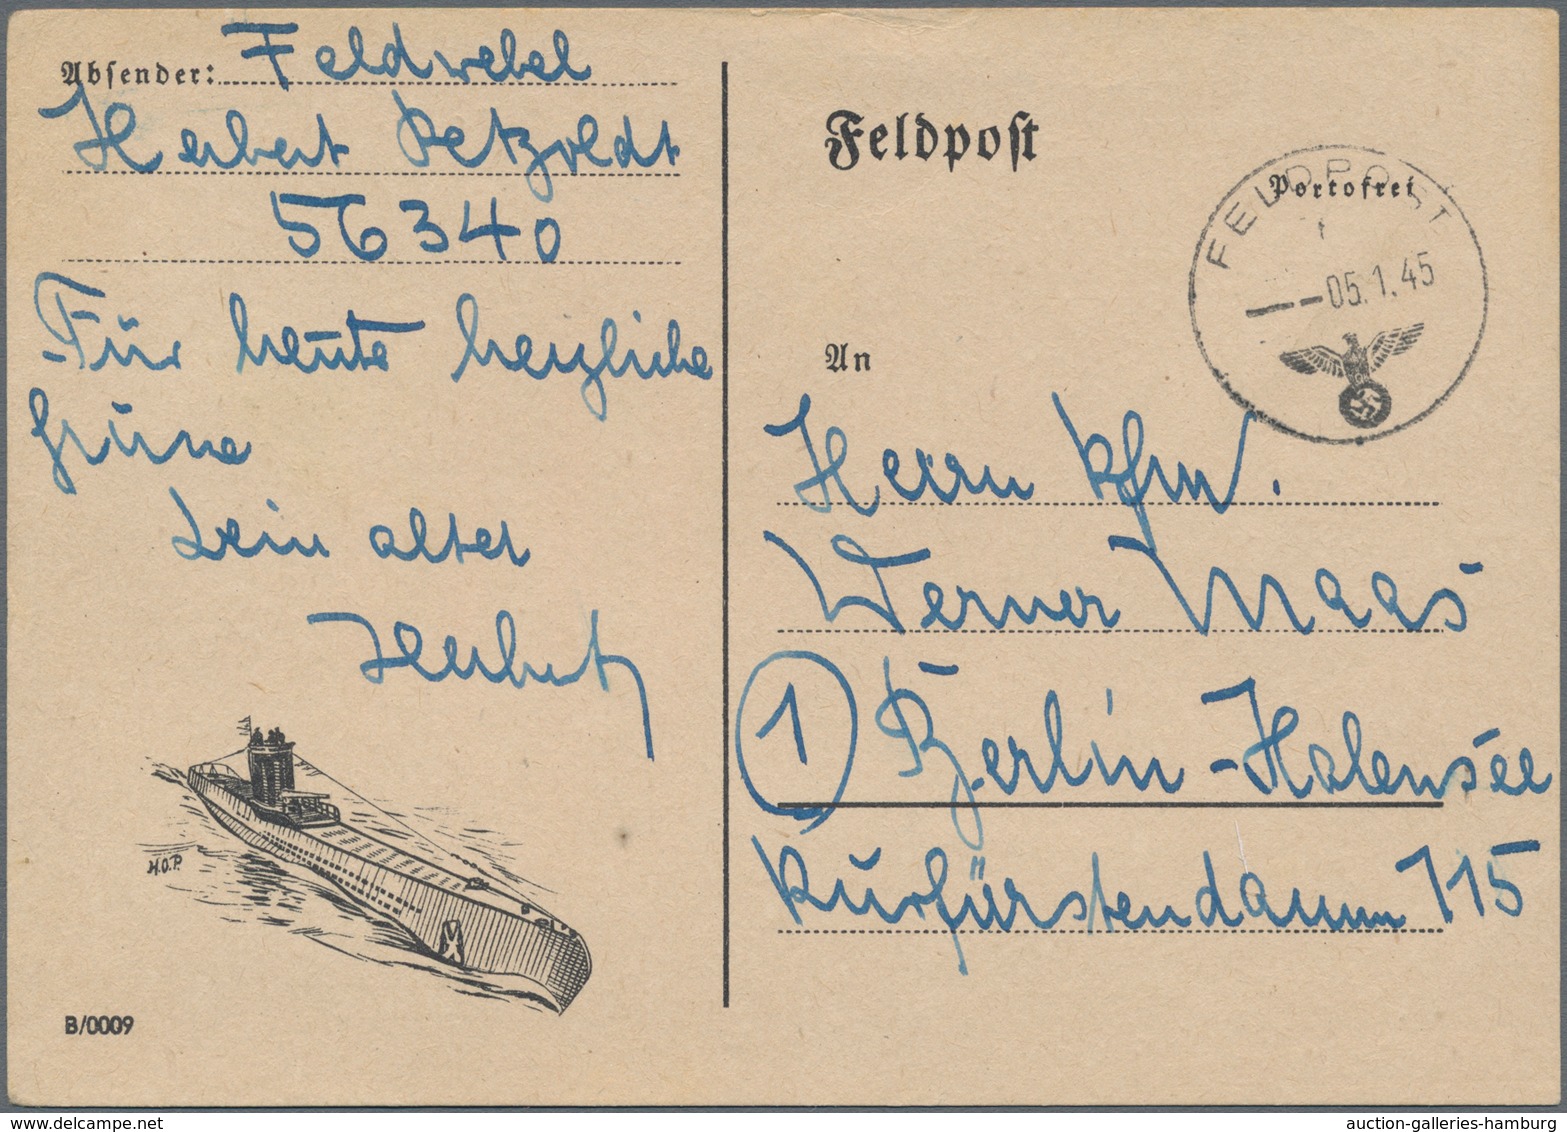 Absender: Feldwebel
Herbert Petzoldt
56340
Für heute herzliche
Grüsse
Dein alter
Herbert
H.O.P.
B/0009
Feldpost
Portofrei
FELDPOST
--05.1.45
An
Herrn Kfm.
Werner Maas
1 Berlin-Halensee
Kurfürstendamm 115
auction-galleries-hamburg